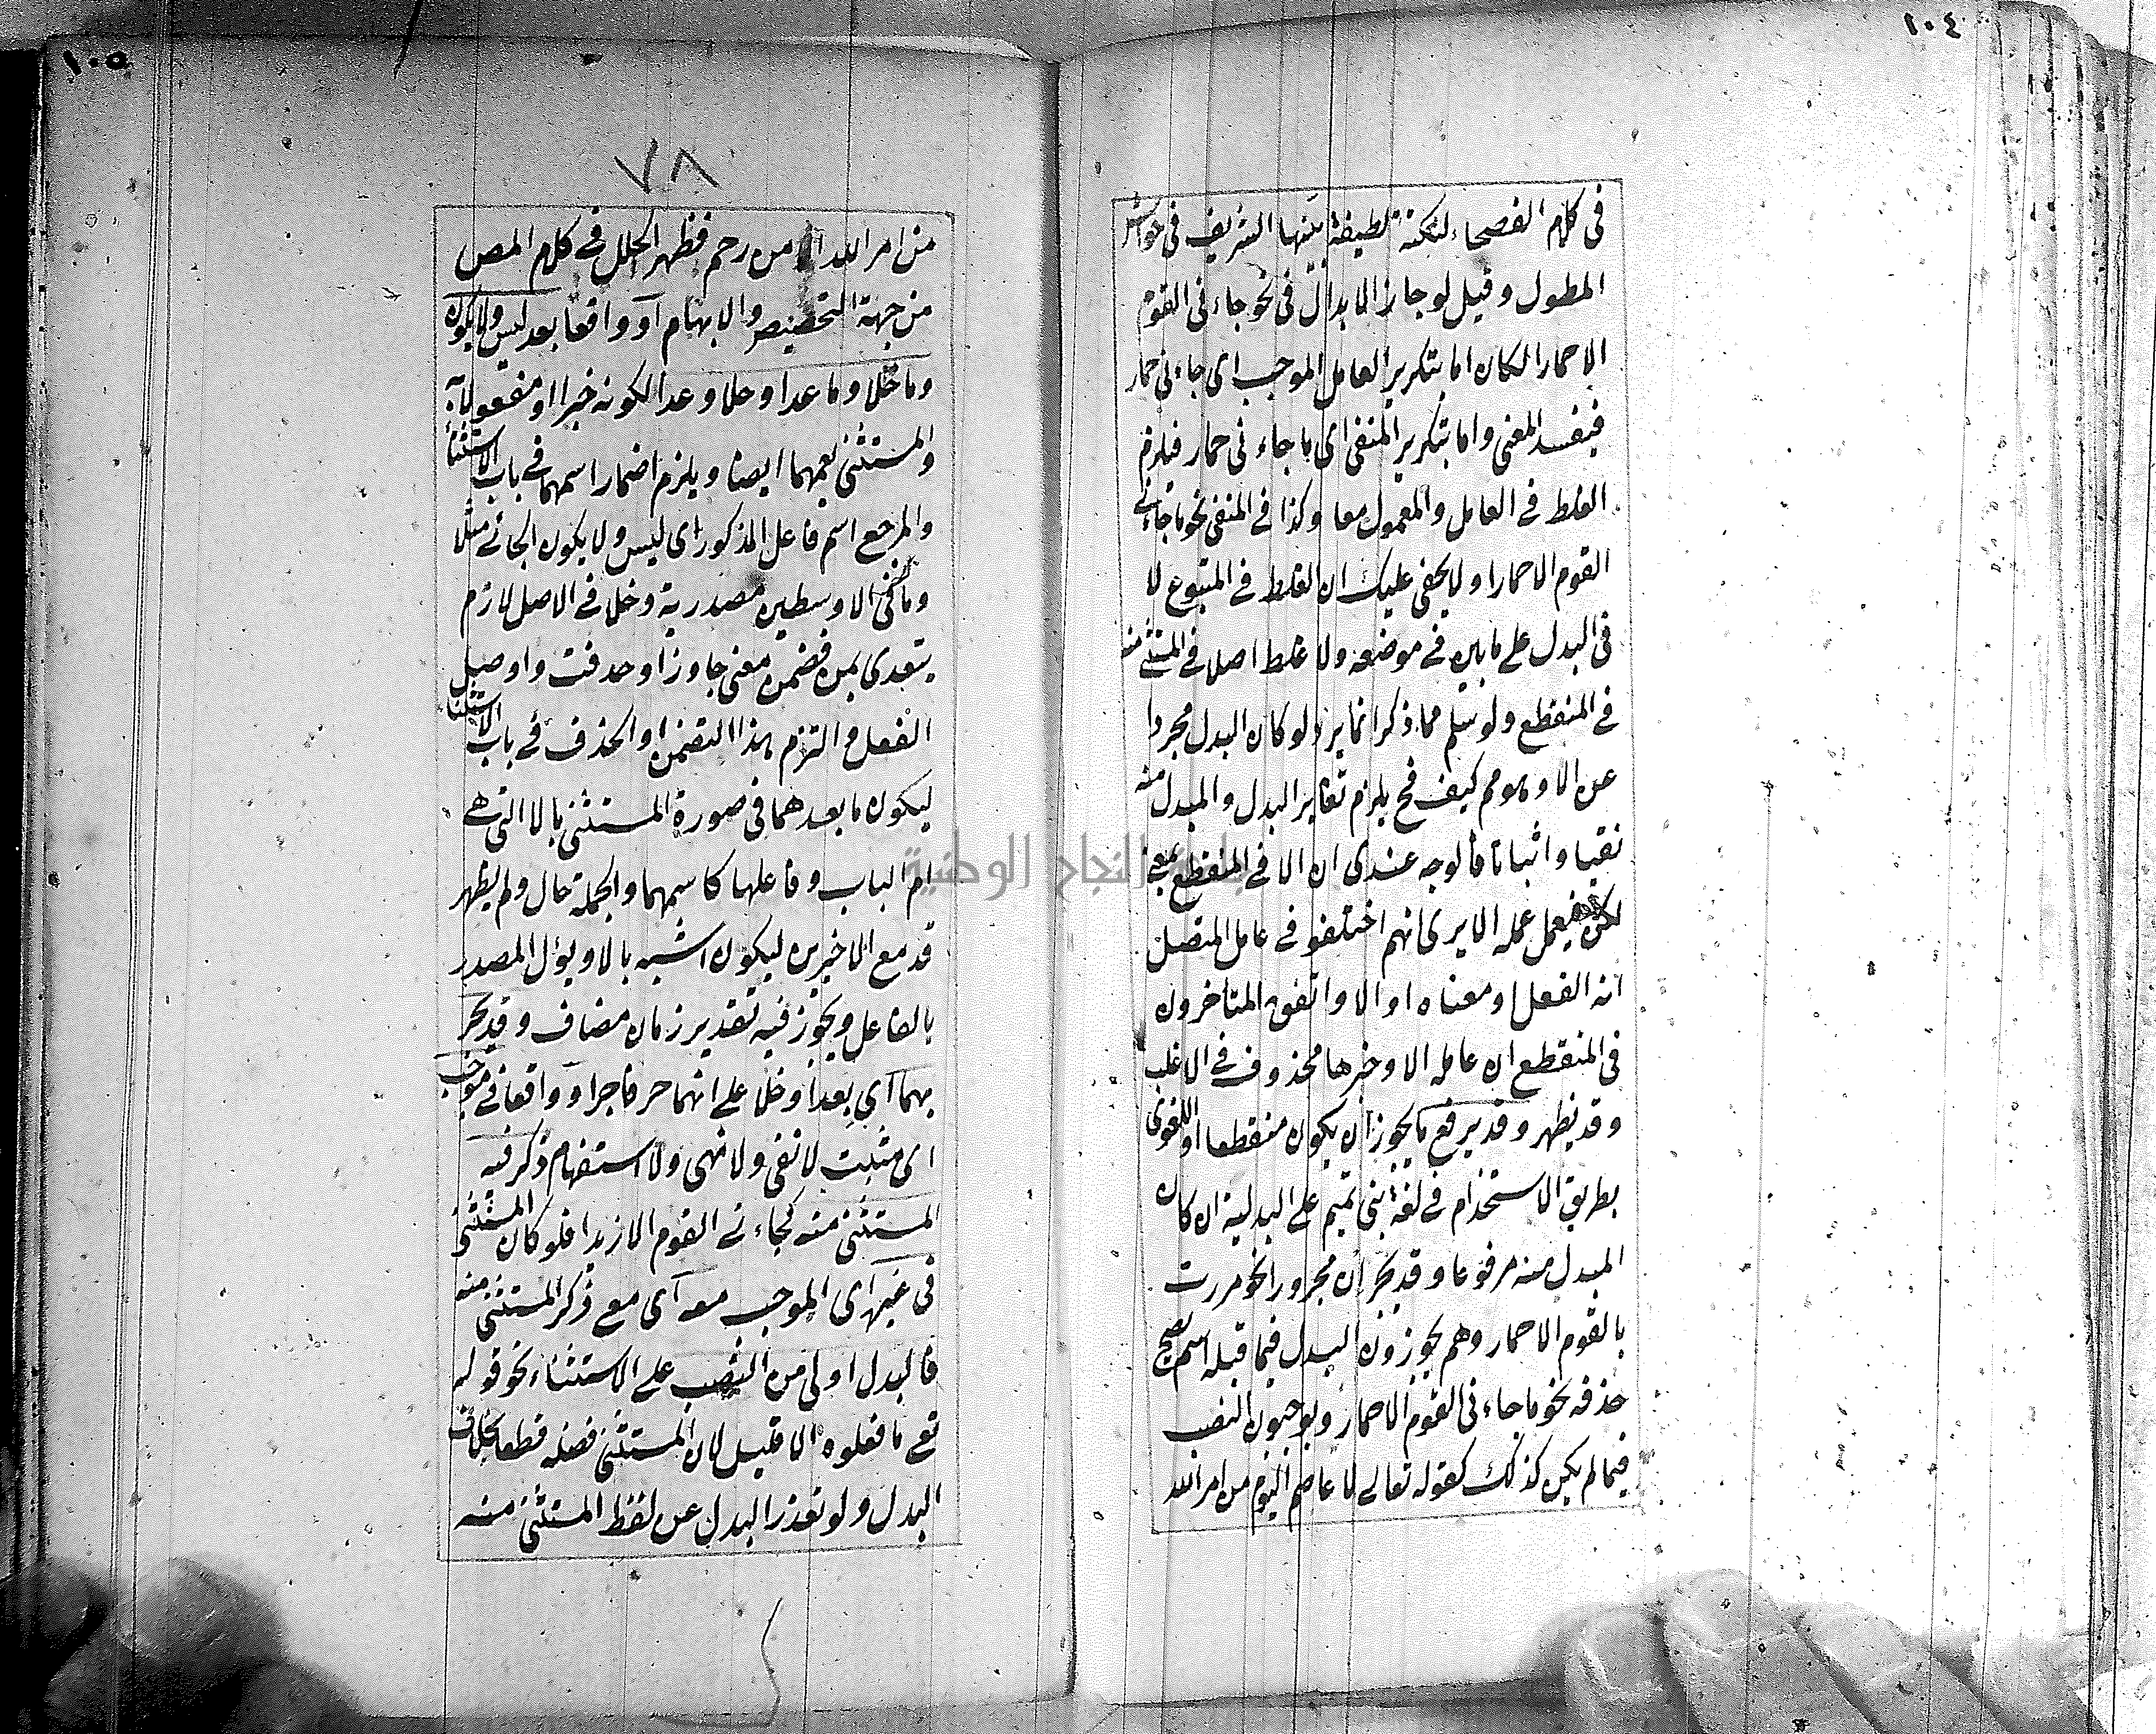 ١٠٤
في كلام الفصحاء لنكتة لطيفة بينها الشريف في حواشي
المطول وقيل لو جاز الابدال في نحو جاءني القوم
الا حمارا لكان اما بتكرير العامل الموجب اى جاءني حمار
فيفسد المعنى واما بتكرير المنفى اى ما جاءني حمار فيلزم
الغلط في العامل والمعمول معا وكذا في المنفى نحو ما جاءني
القوم الا حمارا ولا يخفى عليك ان الغلط في المتبوع لا
في البدل على ما بين في موضعه ولا غلط اصلا في المستثنى منه
في المنقطع ولو سلم مما ذكر انما يرد لو كان البدل مجردا
عن الا وهو مم كيف فح يلزم تغاير البدل والمبدل منه
نفيا واثباتا فالوجه عندى ان الا في المنقطع بمعنى
لكن فيعمل عمله الا يرى انهم اختلفو في عامل المتصل
انه الفعل او معناه او الا واتفق المتأخرون
في المنقطع ان عامله الا وخبرها محذوف في الاغلب
وقد يظهر وقد يرفع ما يجوز ان يكون منقطعا او اللغوى
بطريق الاستخدام في لغة بنى تميم على البدلية ان كان
المبدل منه مرفوعا وقد يجر ان مجرورا نحو مررت
بالقوم الا حمار وهم يجوزون البدل فيما قبله اسم يصح
حذفه نحو ما جاءني القوم الا حمار ويوجبون النصب
فيما لم يكن كذلك كقوله تعالى لا عاصم اليوم من امر الله
١٠٥
٧٨
من امر الله الا من رحم فظهر الخلل في كلام المص
من جهة التخصيص والابهام او واقعا بعد ليس ولا يكون
وما خلا وما عدا وخلا وعدا لكونه خبرا او مفعولا به
والمستثنى يعمهما ايضا ويلزم اضمار اسمهما في باب الاستثناء
والمرجع اسم فاعل المذكور اى ليس ولا يكون الجائى مثلا
وما في الاوسطين مصدرية وخلا في الاصل لازم
يتعدى بمن فضمن معنى جاوز او حذفت واوصل
الفعل والتزم هذا التضمن او الحذف في باب الاستثناء
ليكون ما بعدهما في صورة المستثنى بالا التى هي
ام الباب وفاعلها كاسمهما والجملة حال ولم يظهر
قد مع الاخيرين ليكون اشبه بالا ويؤل المصدر
بالفاعل ويجوز فيه تقدير زمان مضاف وقد يجر
بهما اي بعدا وخلا على انهما حرفا جر او واقعا في موجب
اى مثبت لا نفى ولا نهى ولا استفهام ذكر فيه
المستثنى منه كجاءنى القوم الا زيدا فلو كان المستثنى
في غيره اى الموجب معه اى مع ذكر المستثنى منه
فالبدل اولى من النصب على الاستثناء نحو قوله
تع ما فعلوه الا قليل لان المستثنى فضله قطعا بخلاف
البدل ولو تعذر البدل عن لفظ المستثنى منه
جامعة النجاح الوطنية